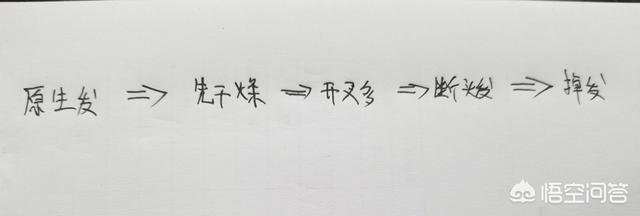 原生发 => 先干燥 => 开叉多 => 断发 => 掉发
悟空问答